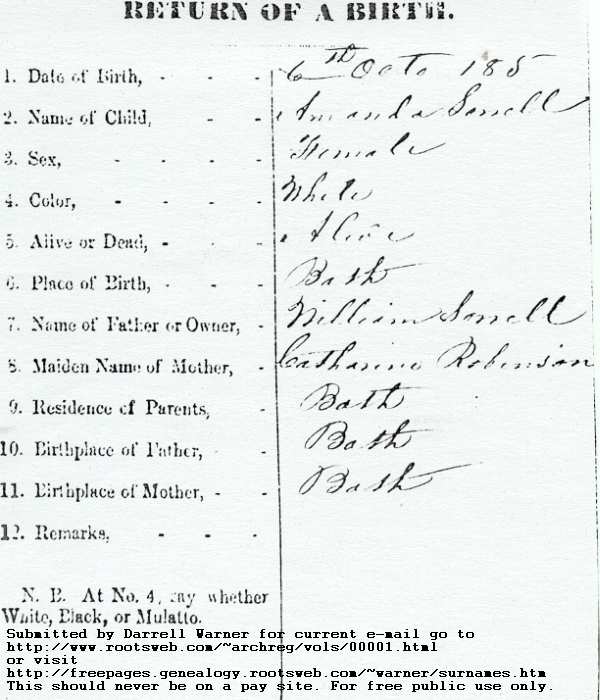 RETURN OF A BIRTH.
1. Date of Birth, - - - 6th Octo 185
2. Name of Child, - - Amanda Sorrell
3. Sex, - - - - Female
4. Color, - - - - White
5. Alive or Dead, - - - Alive
6. Place of Birth, - - - Bath
7. Name of Father or Owner, - William Sorrell
8. Maiden Name of Mother, - Catharine Robinson
9. Residence of Parents, - Bath
10. Birthplace of Father, - - Bath
11. Birthplace of Mother, - - Bath
12. Remarks, - - -
N. B. At No. 4, say whether
White, Black, or Mulatto.
Submitted by Darrell Warner for current e-mail go to
http://www.rootsweb.com/~archreg/vols/00001.html
or visit
http://freepages.genealogy.rootsweb.com/~warner/surnames.htm
This should never be on a pay site. For free public use only.